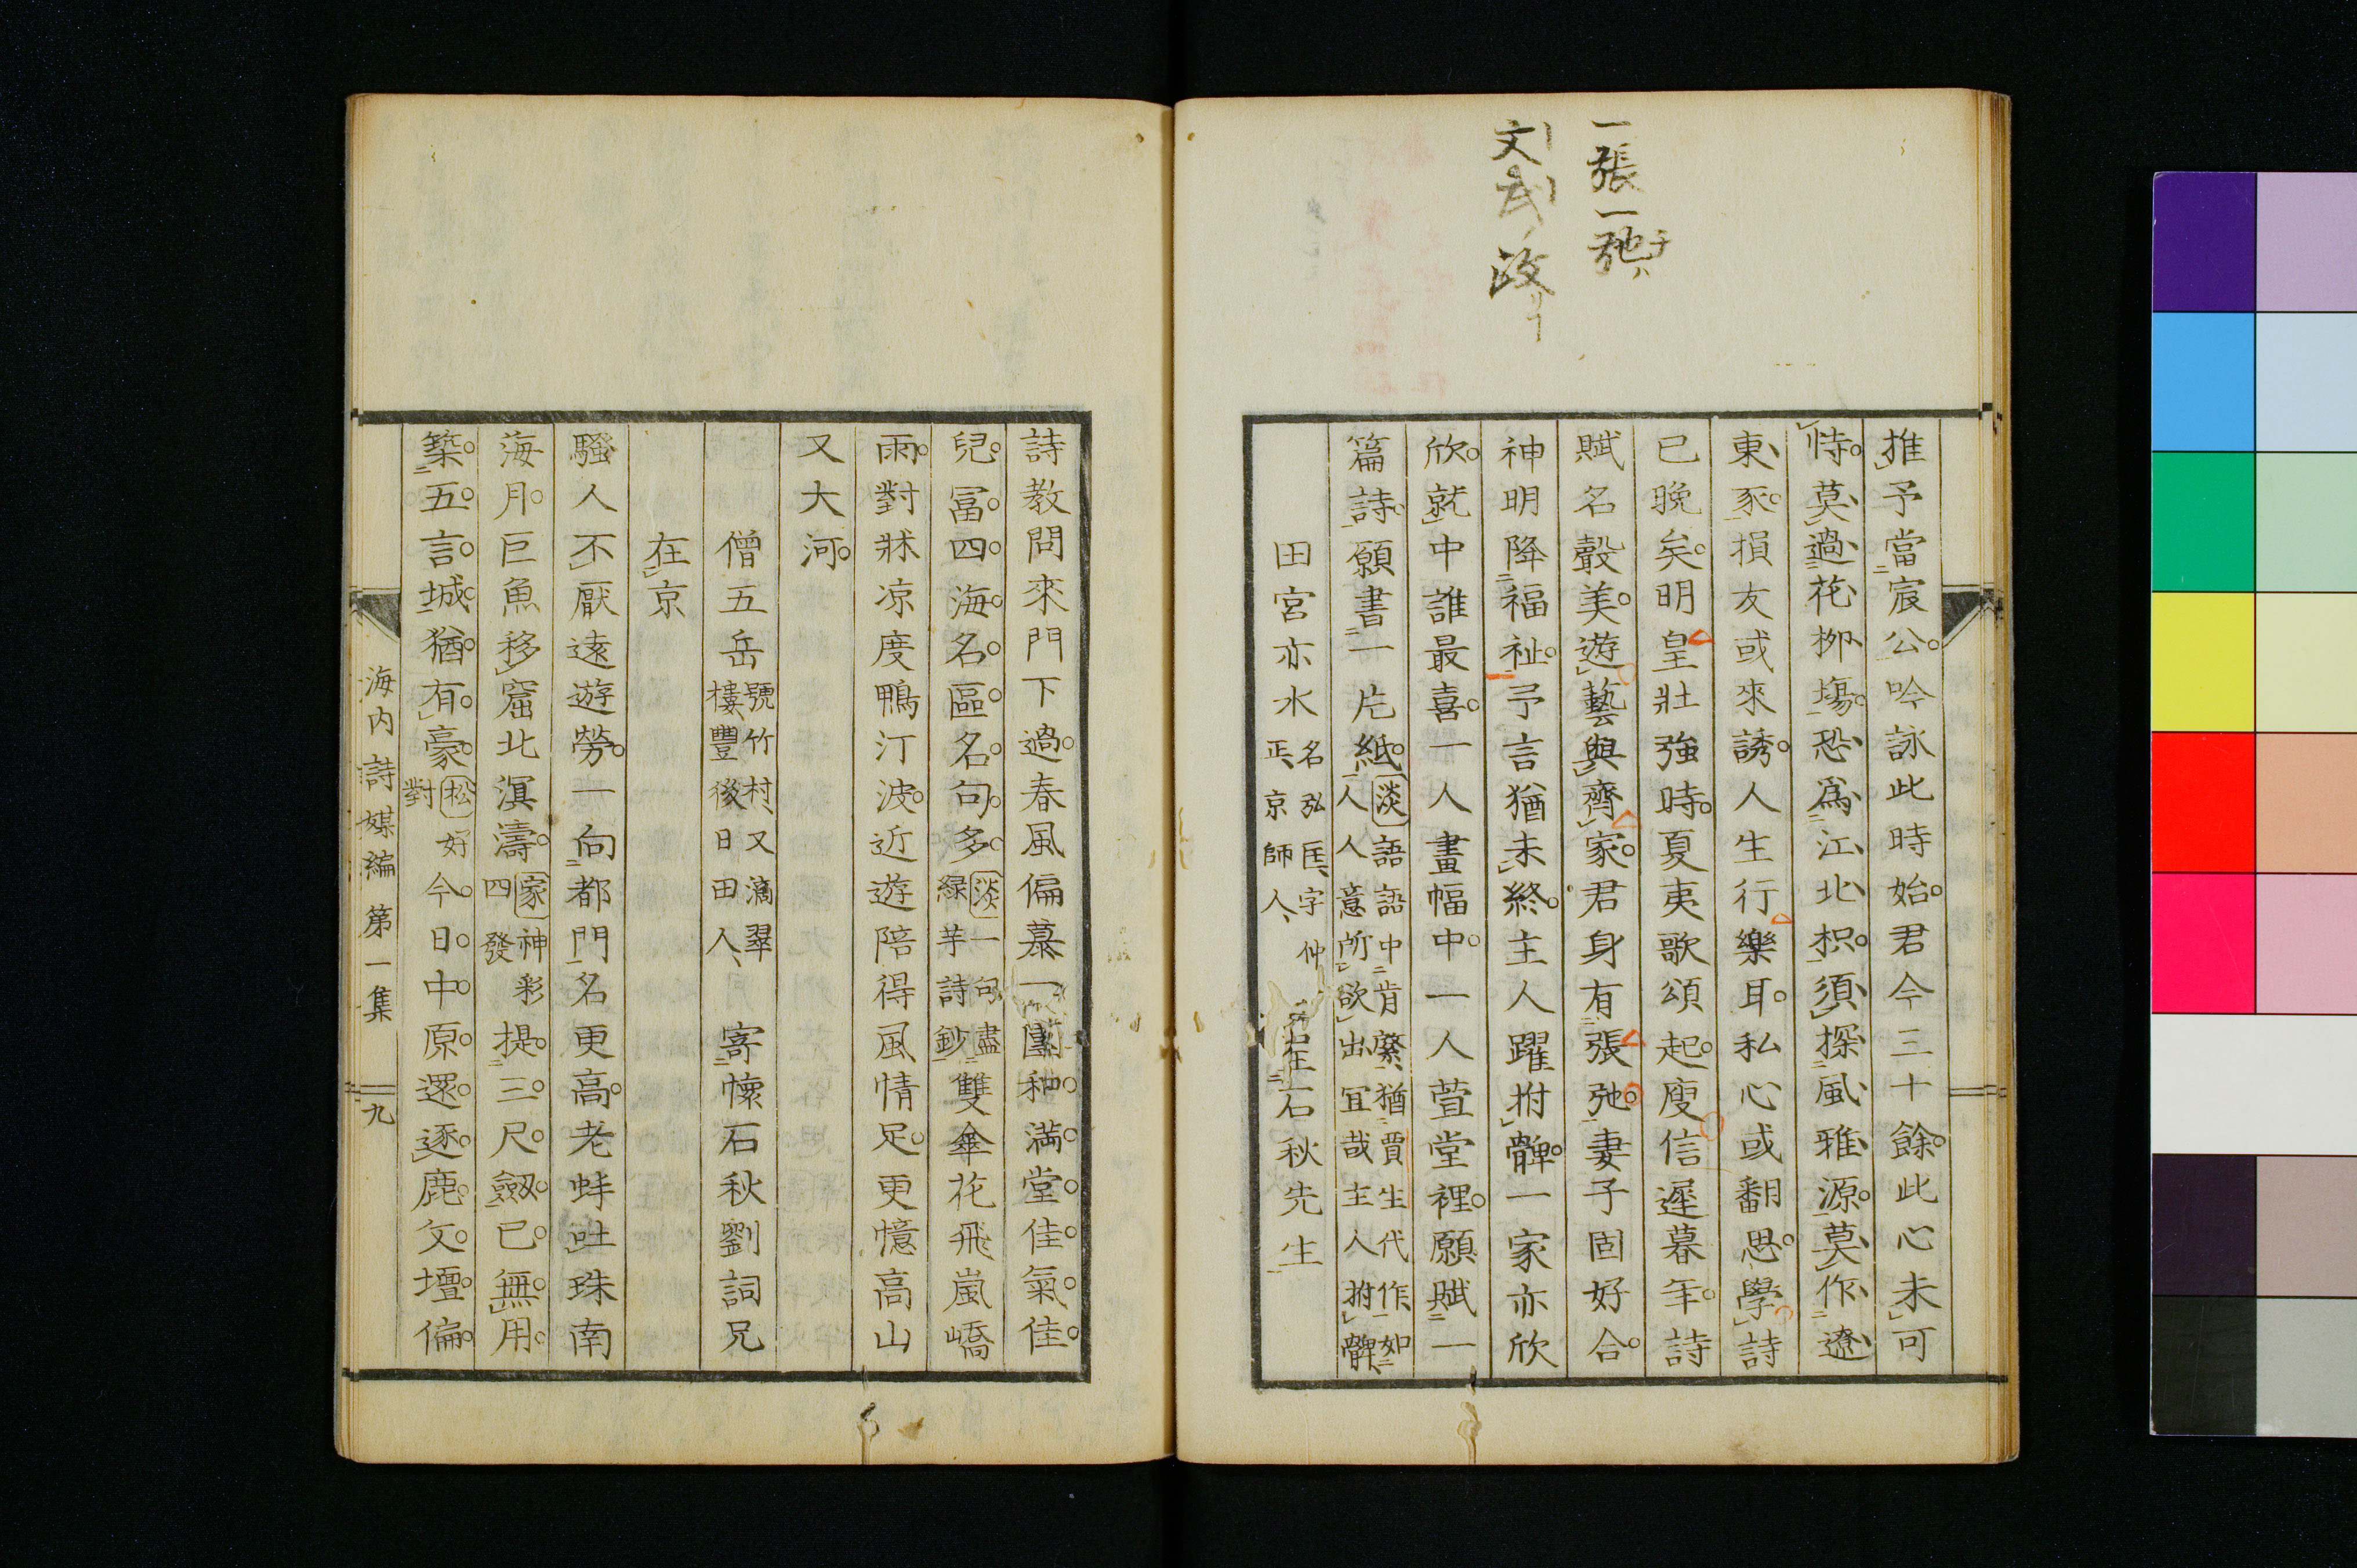 一張一弛
文武ノ政
推予當宸公吟詠此時始君今三十餘此心未可
恃莫過花柳場恐爲江北枳須探風雅源莫作遼
東豕損友或來誘人生行樂耳私心或翻思學詩
已晩矣明皇壯強時夏夷歌頌起廋信遲暮年詩
賦名聲美遊藝與齊家君身有張弛妻子固好合
神明降福祉予言猶未終主人躍拊髀一家亦欣
欣就中誰最喜一人畫幅中一人萱堂裡願賦一
篇詩願書一片紙淡語語中肯綮猶賈生代作如人人意所欲出宜哉主人拊髀
田宮亦水名弘匡字仲正京師人石秋先生
詩教問來門下過春風偏慕一團和滿堂佳氣佳
兒冨四海名區名句多淡一句盡綠芋詩鈔雙傘花飛嵐嶠
雨對牀凉度鴨汀波近遊陪得風情足更憶高山
又大河
僧五岳號竹村又滴翠樓豐後日田人寄懷石秋劉詞兄
在京
騷人不厭遠遊勞一向都門名更高老蚌吐珠南
海月巨魚移窟北溟濤家神彩四發提三尺劔已無用
築五言城猶有豪松好對今日中原還逐鹿文壇偏
海内詩媒編第一集
九